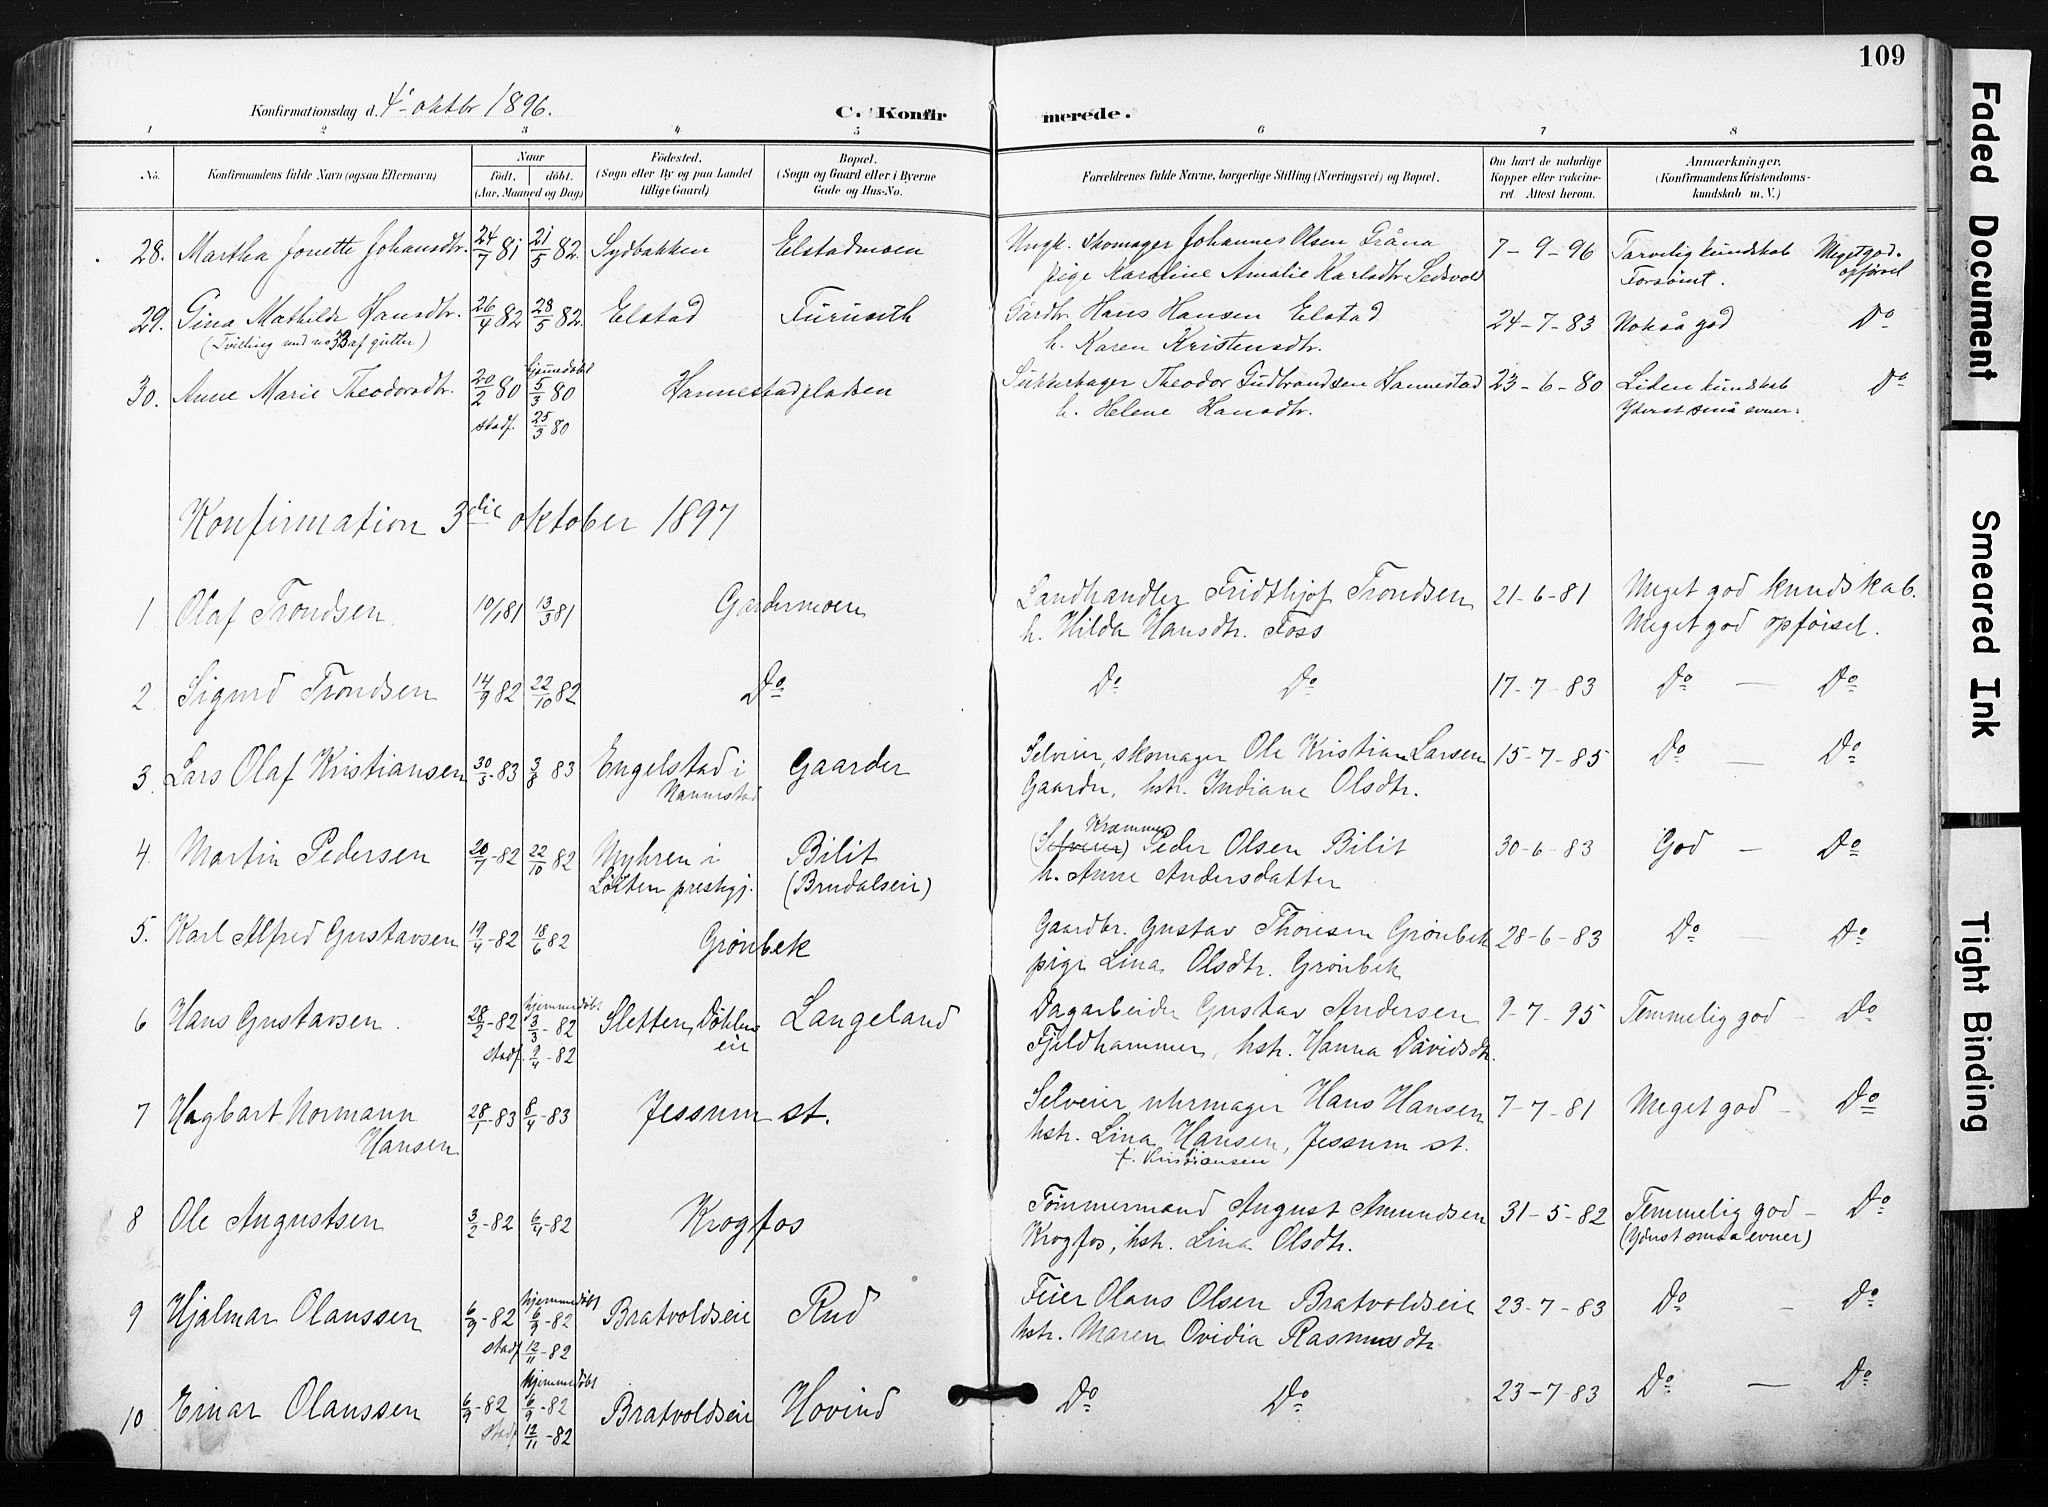 109
Konfirmationsdag d. 4' oktbr 1896.
C. Konfir merede.
1 2 3 4 5 6 7 8
No. Konfirmandens fulde Navn (ogsaa Efternavn) Naar født. døbt. (Aar, Maaned og Dag) Födested. (Sogn eller By og paa Landet tillige Gaard) Bopæl. (Sogn og Gaard eller i Byerne Gade og Hus-No. Forældrenes fulde Navne, borgerlige Stilling (Næringsvei) og Bopæl. Om havt de naturlige Kopper eller vakcineret Attest herom. Anmærkninger, (Konfirmandens Kristendomskundskab m. V.)
28. Martha Jonette Johansdtr. 24/7 81 21/5 82 Sydbakken Elstadmoen Ungk. Skomager Johannes Olsen Tråna 7-9-96 Tarvelig kundskab Meget god.
pige Karoline Amalie Karlsdtr Forsømt. opførsel
29. Gina Mathilde Hansdtr. 26/4 82 28/5 82 Elstad Furuseth Gardbr. Hans Hansen Elstad 24-7-83 Nokså god Do
(Tvilling med no 33 af gutter) h. Karen Kristensdtr.
30. Anne Marie Theodorsdtr. 20/2 80 hjemmedøbt 5/3 80 Hannestadpladsen Theodor Gudbrandsen Hannestad 23-6-80 Liden kundskab Do
stadf. 25/3 80 h. Helene Hansdtr. Yderst små evner.
Konfirmation 3die oktober 1897
1 Olaf Trondsen 10/1 81 13/3 81 Gardermoen Landhandler Fridthjof Trondsen 21-6-81 Meget god kundskab.
h. Hilda Hansdtr. Foss Meget god opførsel.
2 Sigurd Trondsen 14/9 82 22/10 82 Do Do Do 17-7-83 Do — Do
3 Lars Olaf Kristiansen 30/5-83 3/8 83 Engelstad i Gaarder Selveier, skomager Ole Kristian Larsen 15-7-85 Do — Do
Nannestad Gaarder, hstr. Indiane Olsdtr.
4. Martin Pedersen 20/7-82 22/10 82 Myhren i Bilit (Selveier) Kræmmer Peder Olsen Bilit 30-6-83 God — Do
Løiten prestegj. (Brudalseie) h. Anne Andersdatter
5. Karl Alfred Gustavsen 19/4-82 18/6 82 Grønbek Gaardbr. Gustav Thoresen Grønbek 28-6-83 Do — Do
pige Lina Olsdtr. Grønbek
6 Hans Gustavsen. 28/2-82 hjemmedøbt 3/3-82 Sletten, Døhleneie Langeland Dagarbeider Gustav Andersen 9-7-95 Temmelig god - Do
stadf. 9/4-82 Fjeldhammer, hstr. Hanna Davidsdtr.
7 Hagbart Normann 28/1-83 8/4-83 Jessum st. Selveier, uhrmager Hans Hansen 7-7-81 Meget god - Do
Hansen hstr. Lina Hansen, Jessum st.
f. Kristiansen
8 Ole Augustsen 3/2-82 6/4-82 Krogfos Tømmermand August Amundsen 31-5-82 Temmelig god - Do
Krogfos, hstr. Lina Olsdtr. (Yderst smaa evner)
9 Hjalmar Olaussen 6/9-82 hjemmedøbt 6/9-82 Bratvoldseie Rud Feier Olaus Olsen Bratvoldseie 23-7-83 Do - Do
stadf. 12/11-82 hstr. Maren Ovidia Rasmusdtr
10 Einar Olaussen 6/9-82 hjemmedøbt 6/9-82 Bratvoldseie Hovind Do Do 23-7-83 Do — Do
stadf. 12/11-82
Faded Document
Smeared Ink
Tight Binding